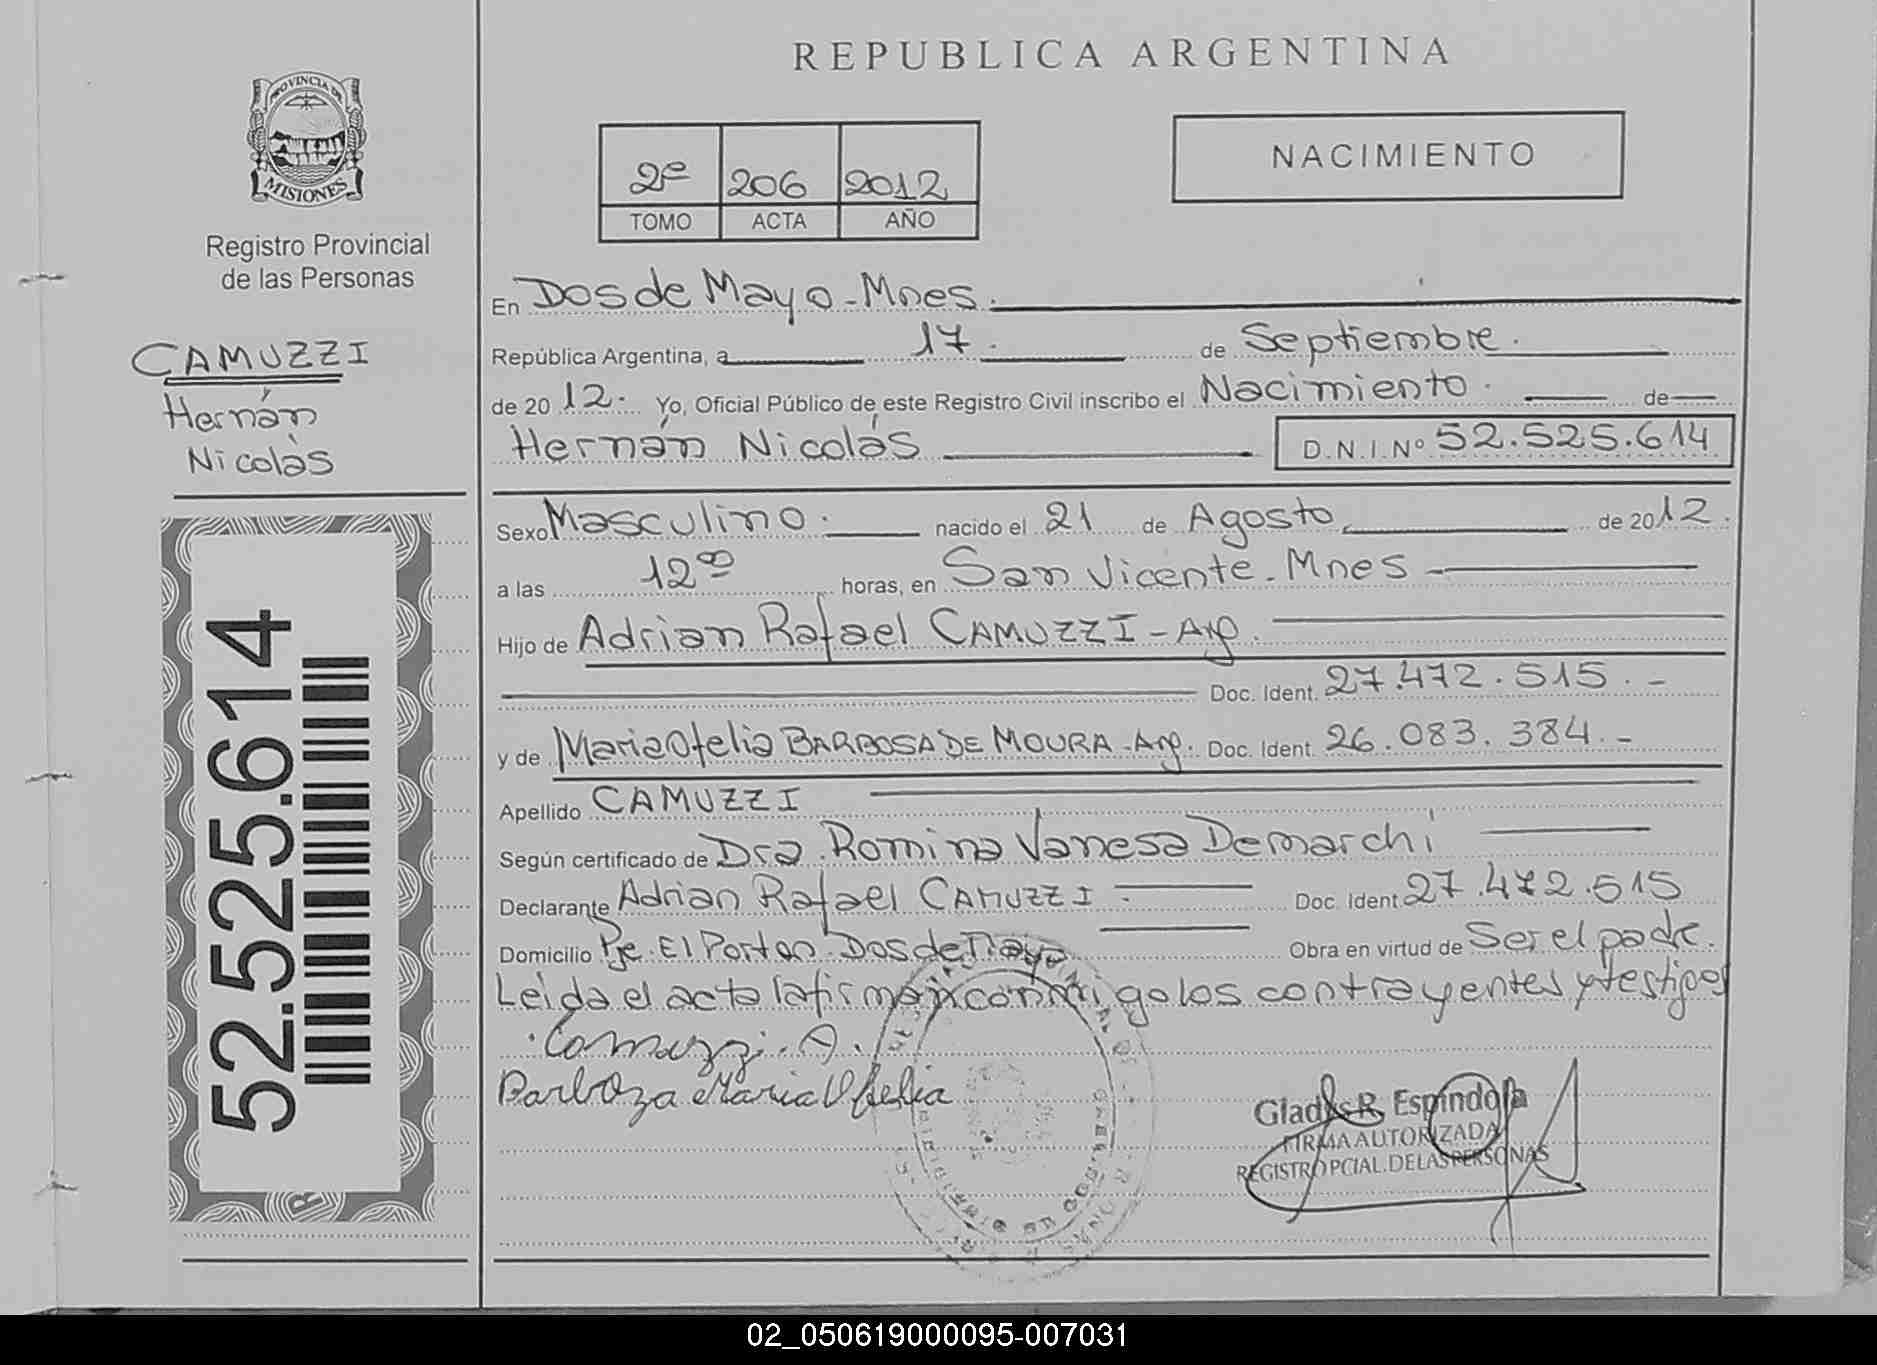 PROVINCIA DE
MISIONES
Registro Provincial
de las Personas
CAMUZZI
Hernán
Nicolás
52.525.614
REPUBLICA ARGENTINA
2º 206 2012
TOMO ACTA AÑO
NACIMIENTO
En Dos de Mayo - Mnes.
República Argentina, a 17. de Septiembre.
de 20 12. Yo, Oficial Público de este Registro Civil inscribo el Nacimiento. de
Hernán Nicolás D.N.I.Nº 52.525.614
Sexo Masculino. nacido el 21 de Agosto de 2012.
a las 12⁰⁰ horas, en San Vicente - Mnes -
Hijo de Adrian Rafael CAMUZZI - Arg.
Doc. Ident. 27.472.515. -
y de Maria Ofelia BARBOSA DE MOURA - Arg. Doc. Ident. 26.083.384. -
Apellido CAMUZZI
Según certificado de Dra. Romina Vanesa Demarchi
Declarante Adrian Rafael CAMUZZI. Doc. Ident. 27.472.515
Domicilio Pje. El Porton - Dos de Mayo Obra en virtud de Ser el padre.
Leida el acta la firman conmigo los contrayentes y testigos
Camuzzi. A.
Barboza Maria Ofelia
Gladys R. Espindola
FIRMA AUTORIZADA
REGISTRO PCIAL. DE LAS PERSONAS
02_050619000095-007031